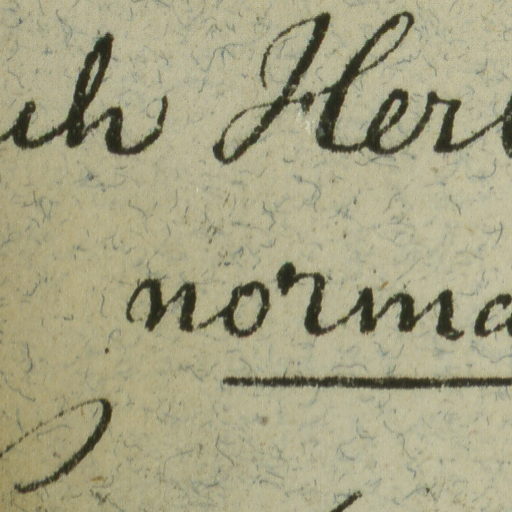 uh Her
norma